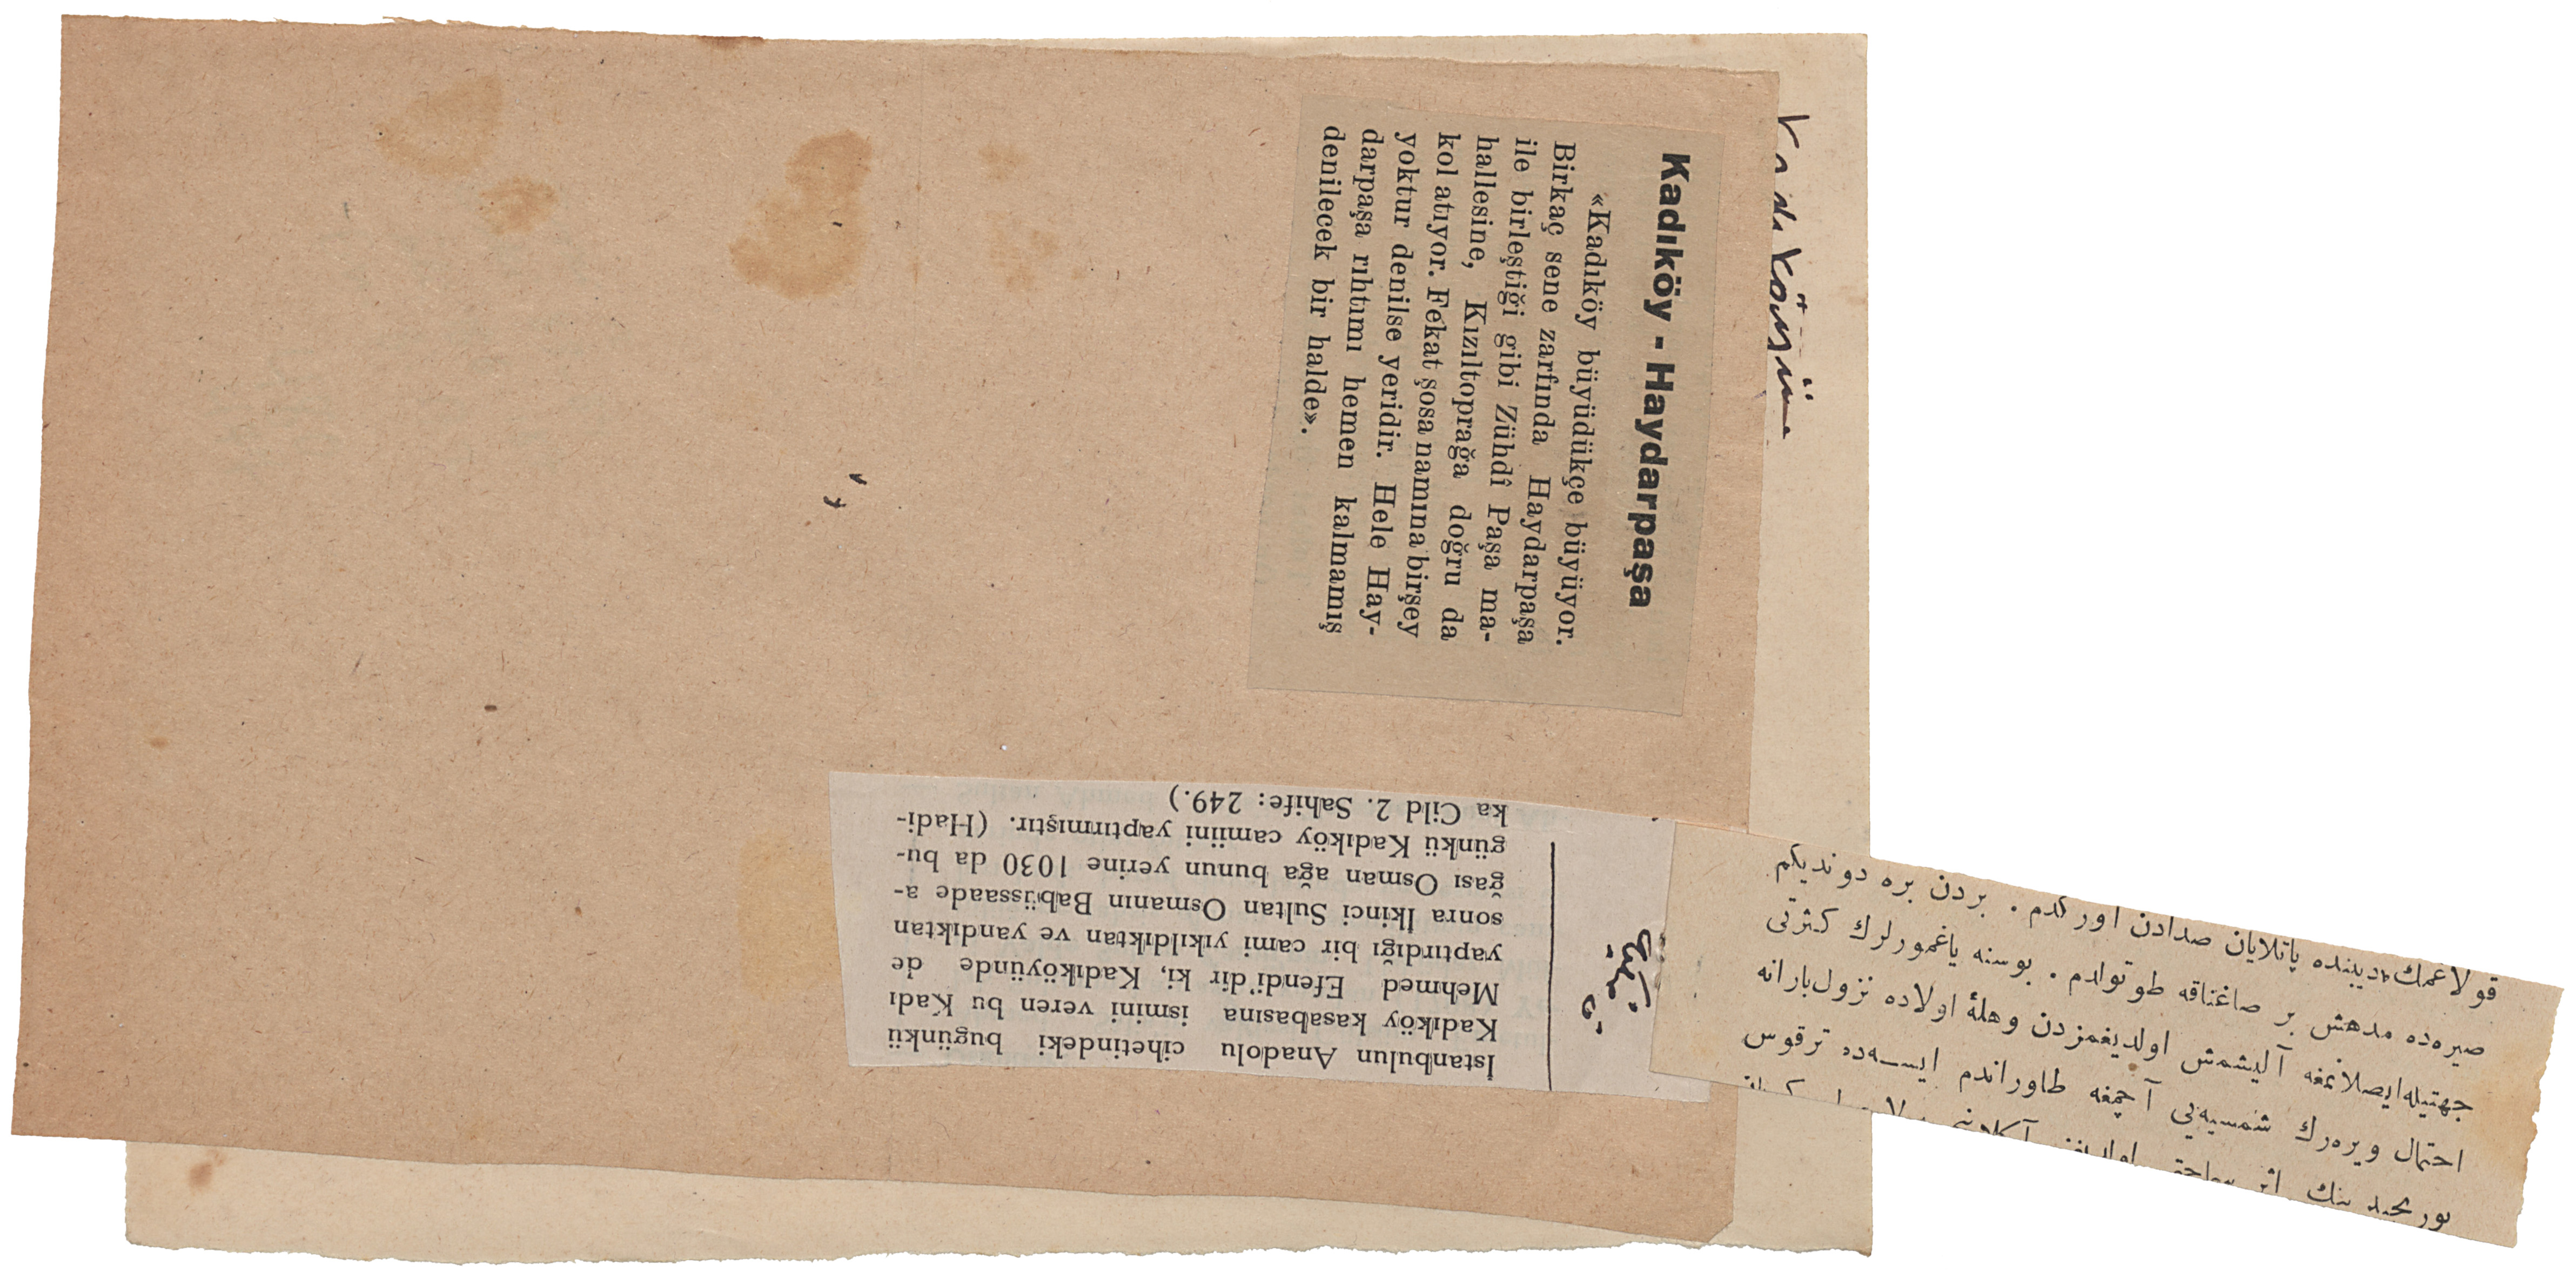 Kadıköyüne
Kadıköy - Haydarpaşa
«Kadıköy büyüdükçe büyüyor.
Birkaç sene zarfında Haydarpaşa
ile birleştiği gibi Zühdî Paşa ma-
hallesine, Kızıltoprağa doğru da
kol atıyor. Fekat şosa namına birşey
yoktur denilse yeridir. Hele Hay-
darpaşa rıhtımı hemen kalmamış
denilecek bir halde».
İstanbulun Anadolu cihetindeki bugünkü
Kadıköy kasabasına ismini veren bu Kadı
Mehmed Efendi'dir ki, Kadıköyünde de
yaptırdığı bir cami yıkıldıktan ve yandıktan
sonra İkinci Sultan Osmanın Babüssaade a-
ğası Osman ağa bunun yerine 1030 da bu-
günkü Kadıköy camiini yaptırmıştır. (Hadi-
ka Cild 2. Sahife: 249.)
قولاغمك دیبنده پاتلایان صدادن اورکدم . بردن بره دوندیکم
صیره‌ده مدهش بر صاغناقه طوتولدم . بوسنه یاغمورلرك کثرتی
جهتیله ایصلانمغه آلیشمش اولدیغمزدن وهلهٔ اولاده نزول بارانه
احتمال ویره‌رك شمسیه‌یی آچمغه طاوراندم ایسه‌ده ترقوس